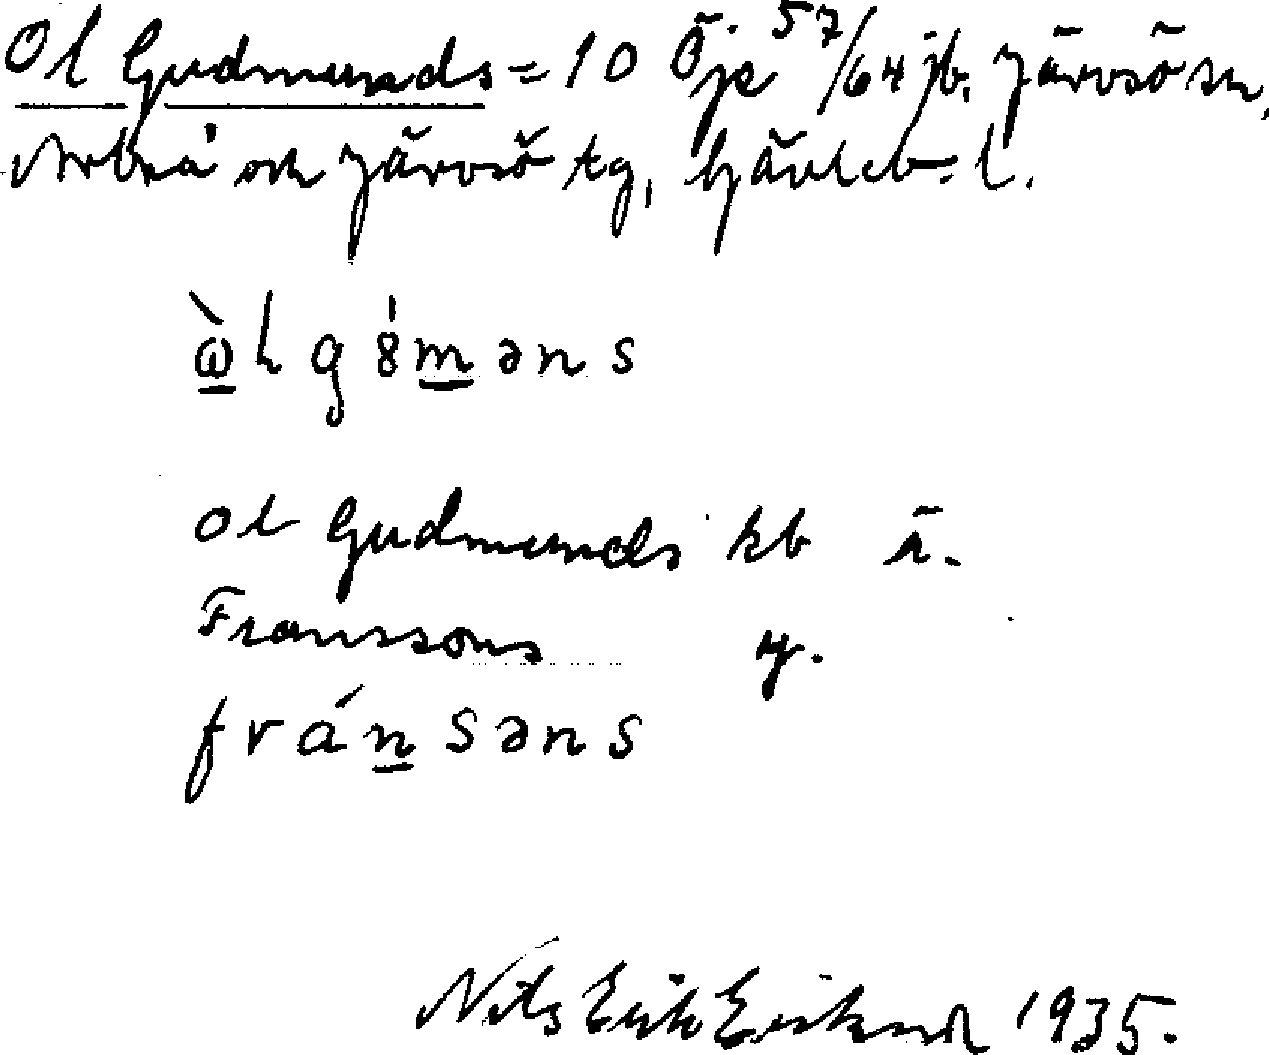 Ol Gudmunds = 10 Öje 57/64 jb. Järvsö sn,
Arbrå och Järvsö tg, Gävleb. l.
ὼl gǿməns
ol Gudmunds kb ä.
Franssons y.
fránsəns
Nils Erik Eriksson 1935.